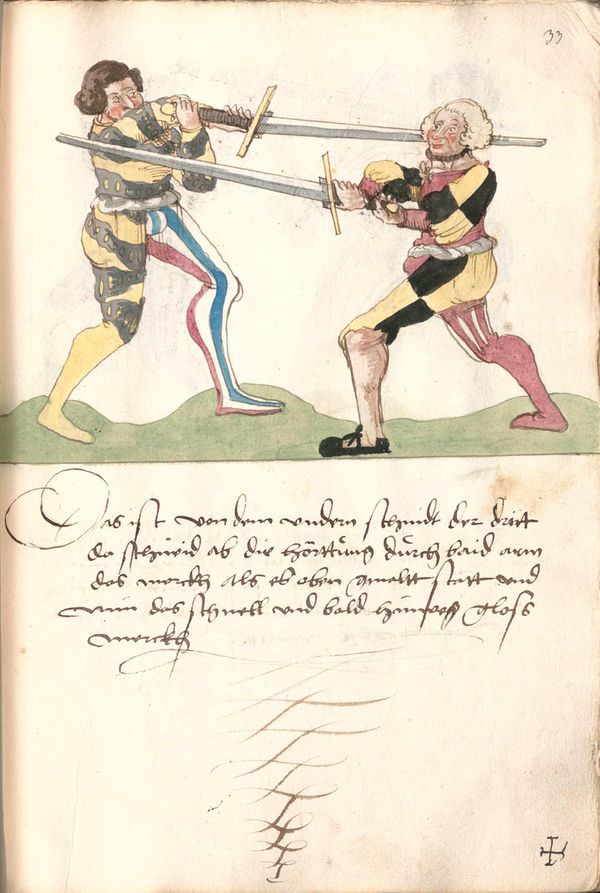 33
Das ist von dem vndern schnidt der dritt
do schneid ab die hörttung durch baid arm
das merckh als eb oben gmeltt statt vnd
nim das schnell vnd bald hinweg gloss
merckh